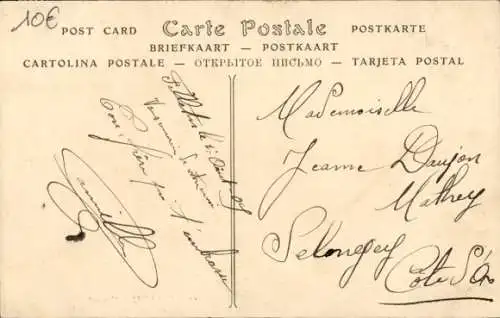 10€
POST CARD Carte Postale POSTKARTE
BRIEFKAART — POSTKAART
CARTOLINA POSTALE — ОТКРЫТОЕ ПИСЬМО — TARJETA POSTAL
le
Ton frère qui t'embrasse
Camille
Mademoiselle
Jeanne Daujon
Mathey
Selongey
Côte d'Or